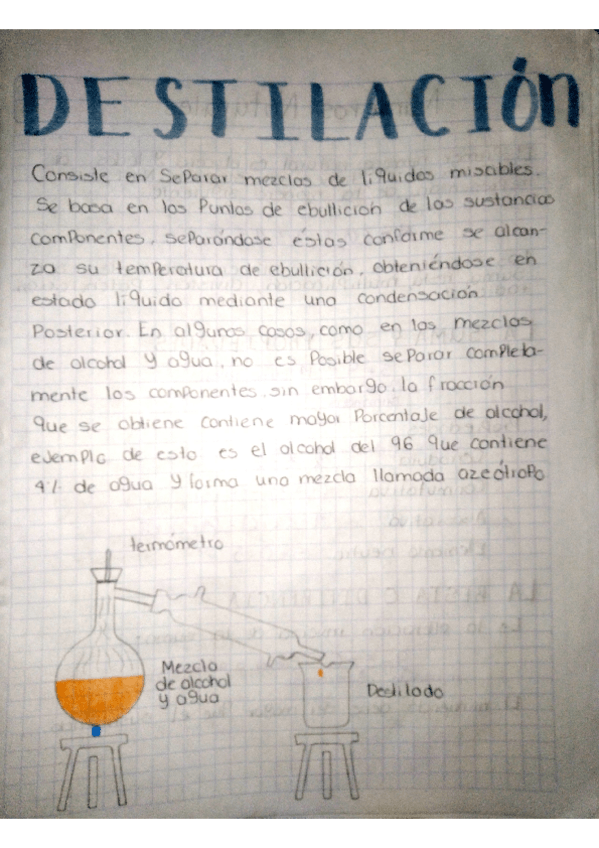 DESTILACIÓN
Consiste en separar mezclas de líquidos miscibles.
Se basa en los Puntos de ebullición de las sustancias
componentes, separándose éstas conforme se alcan-
za su temperatura de ebullición, obteniéndose en
estado líquido mediante una condensación
Posterior. En algunos casos, como en las mezclas
de alcohol y agua, no es Posible separar completa-
mente los componentes, sin embargo, la fracción
que se obtiene contiene mayor Porcentaje de alcohol,
ejemplo de esto es el alcohol del 96 que contiene
4% de agua y forma una mezcla llamada azeótropo
termómetro
Mezcla
de alcohol
y agua
Destilado